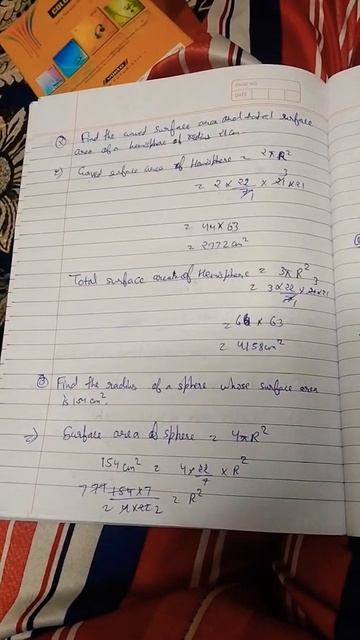 COLOR
PAGE NO.
DATE
② Find the curved surface area and total surface
area of a hemisphere of radius 21cm
⇒ Curved surface area of Hemisphere = 2πR²
= 2 × 22/7 × 21 × 21
3
1
= 44 × 63
= 2772 cm²
Total surface area of Hemisphere = 3πR²
= 3 × 22/7 × 21 × 21
3
1
= 66 × 63
= 4158 cm²
③ Find the radius of a sphere whose surface area
is 154 cm².
⇒ Surface area of sphere = 4πR²
154 cm² = 4 × 22/7 × R²
7 77 154 × 7 / 2 4 × 22 2 = R²